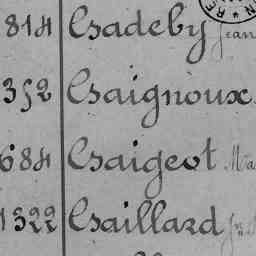 814 Csadeby Jean
352 Csaignoux
684 Csaigeot Ma
1322 Csaillard